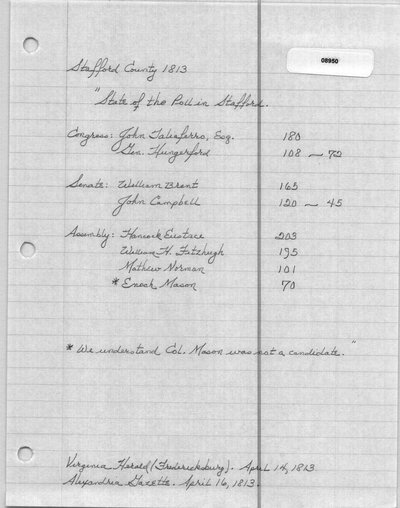 08950
Stafford County 1813
"State of the Poll in Stafford.
Congress: John Taliaferro, Esq. 180
Gen. Hungerford 108 — 72
Senate: William Brent 165
John Campbell 120 — 45
Assembly: Hancock Eustace 203
William H. Fitzhugh 195
Mathew Norman 101
* Enoch Mason 70
* We understand Col. Mason was not a candidate."
Virginia Herald (Fredericksburg). April 14, 1813
Alexandria Gazette. April 16, 1813.